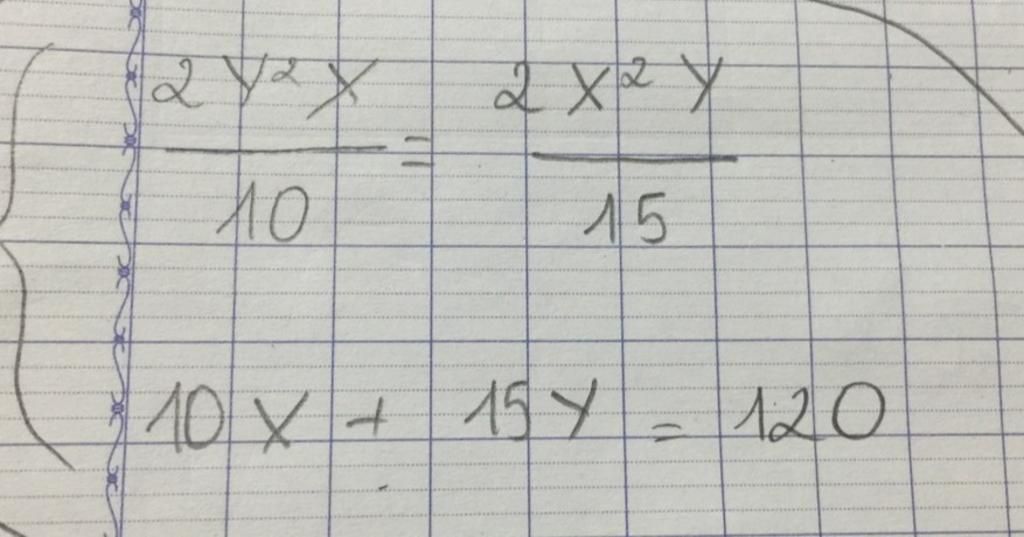 2 Y² X / 10 = 2 X² Y / 15
10 X + 15 Y = 120